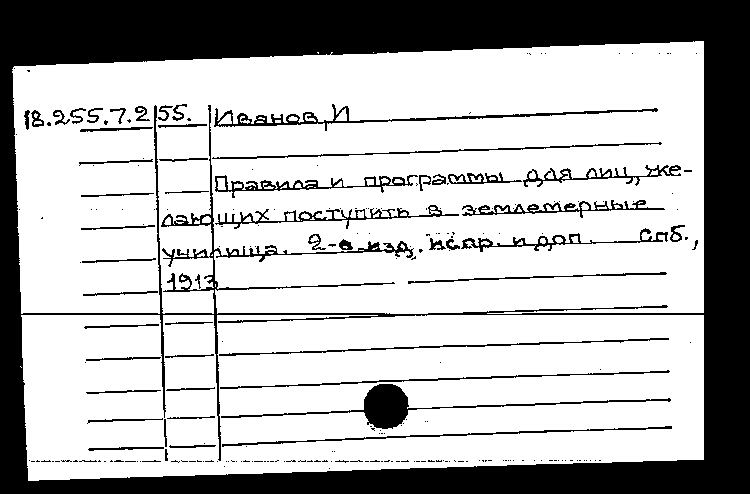 18.255.7.2 55. Иванов, И
Правила и программы для лиц, же-
лающих поступить в землемерные
училища. 2-е изд. испр. и доп. Спб.,
1913